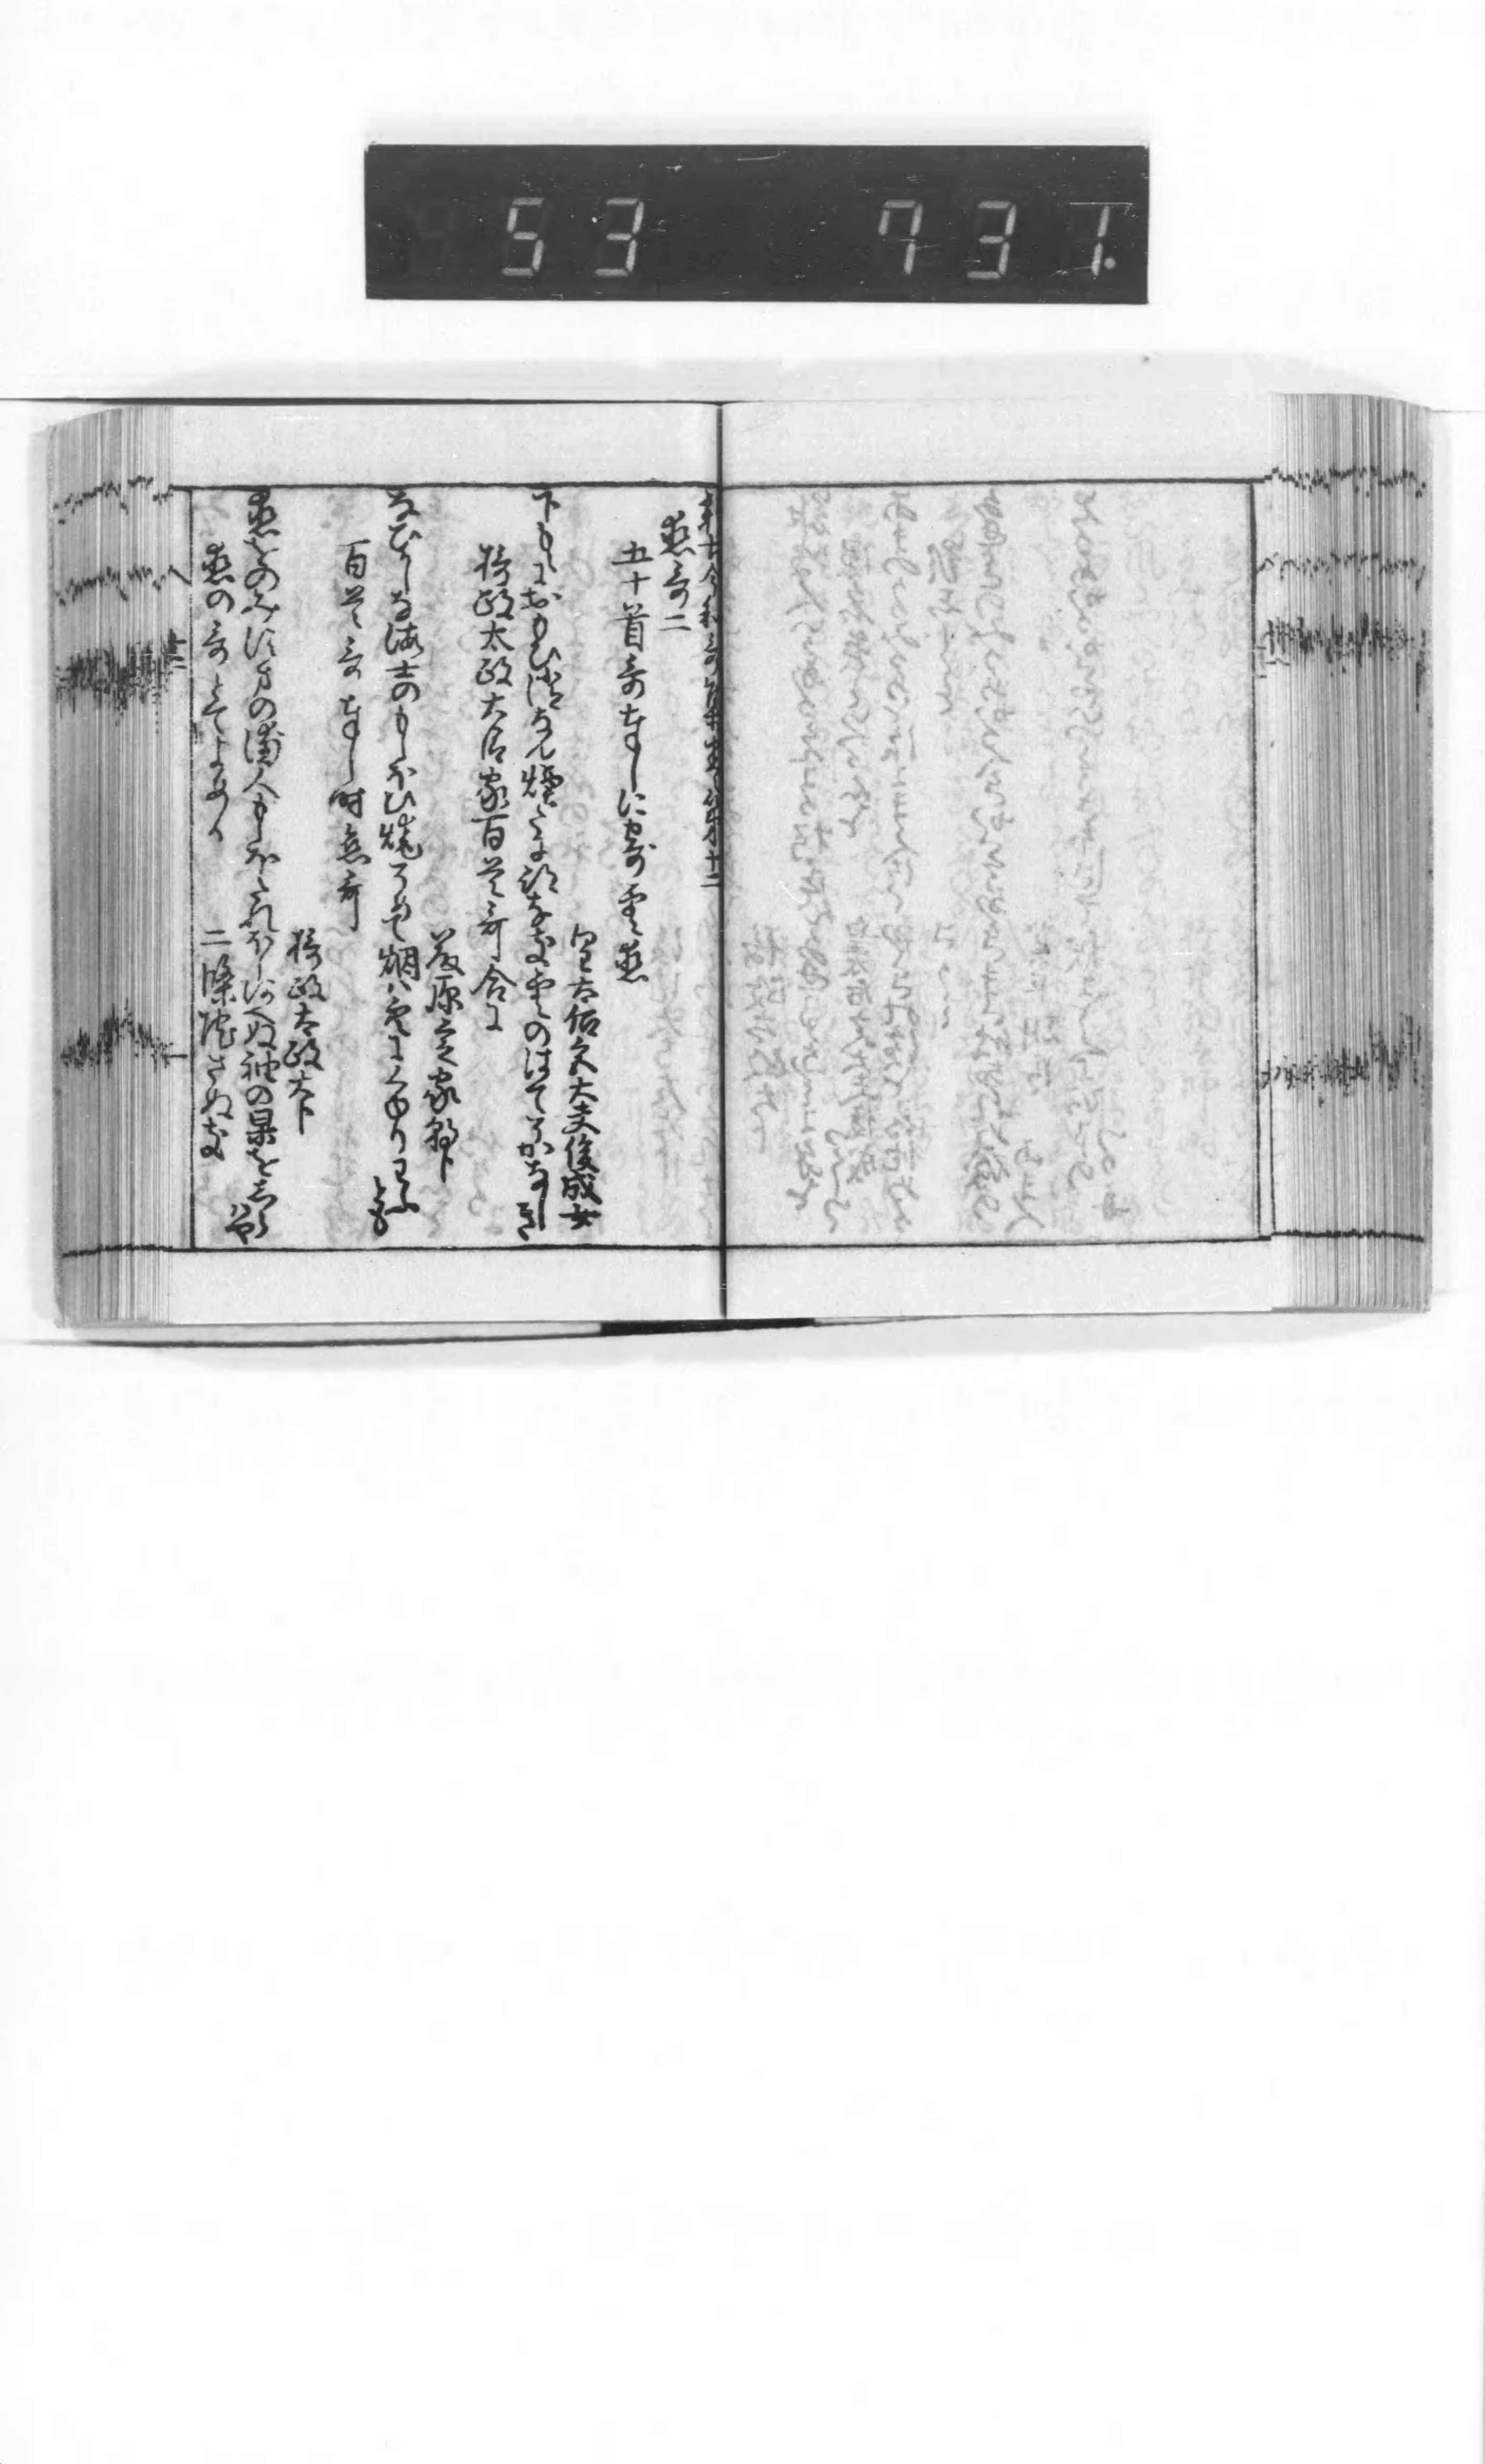 53 731.
新古今和哥集巻第十二
恋哥二
五十首哥奉りしに寄雲恋
皇太后宮大夫俊成女
下もえにおもひ消なん煙たに跡なき雲のはてそかなしき
摂政太政大臣家百首哥合に
藤原定家朝臣
なひかしな海士のもしほひ焼そめて烟は空にくゆりわふとも
百首哥奉りし時恋哥
摂政太政大臣
恋をのみすまの浦人もしほたれほしあへぬ袖の果をしらはや
恋の哥とてよめる
二條院さぬき